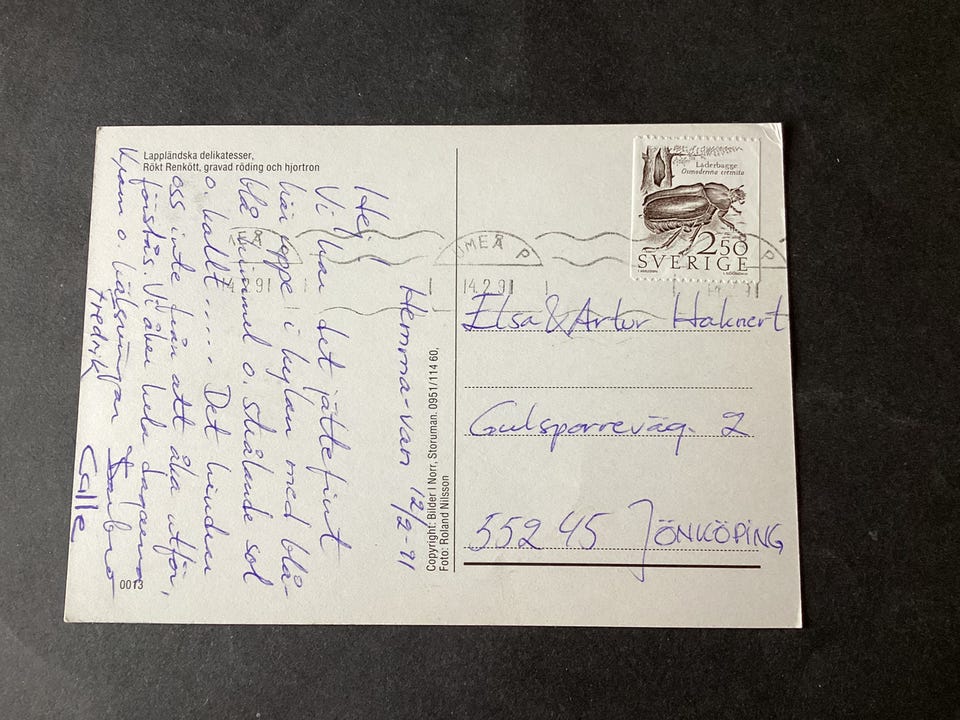 Lappländska delikatesser,
Rökt Renkött, gravad röding och hjortron
Hemma-van 12/2-91
Hej
Vi har det jättefint
här uppe i kylan med blå-
blå himmel o. strålande sol
o. kallt..... Det hindrar
oss inte från att åka utför,
förstås. Vi åker hela dagarna
Kram o. hälsningar
Fredrik Calle
0013
Copyright: Bilder I Norr, Storuman. 0951/114 60.
Foto: Roland Nilsson
Läderbagge
Osmoderma eremita
2.50
SVERIGE
UMEÅ P
14.2.91
Elsa & Artur Haknert
Gulsparreväg. 2
552 45 JÖNKÖPING